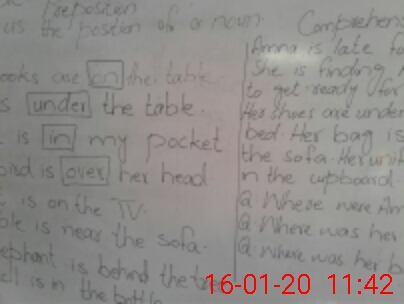 preposition
is the position of a noun
Comprehens
ooks are on the table
s under the table.
is in my pocket
ird is over her head
is on the TV.
ble is near the sofa.
ephant is behind the tree
ell is in the bottle
Amna is late fo
She is finding
to get ready for
Her shoes are under
bed. Her bag is
the sofa. Her unif
in the cupboard.
Q. Where were Am
Q. Where was her
Q. Where was her b
16-01-20 11:42